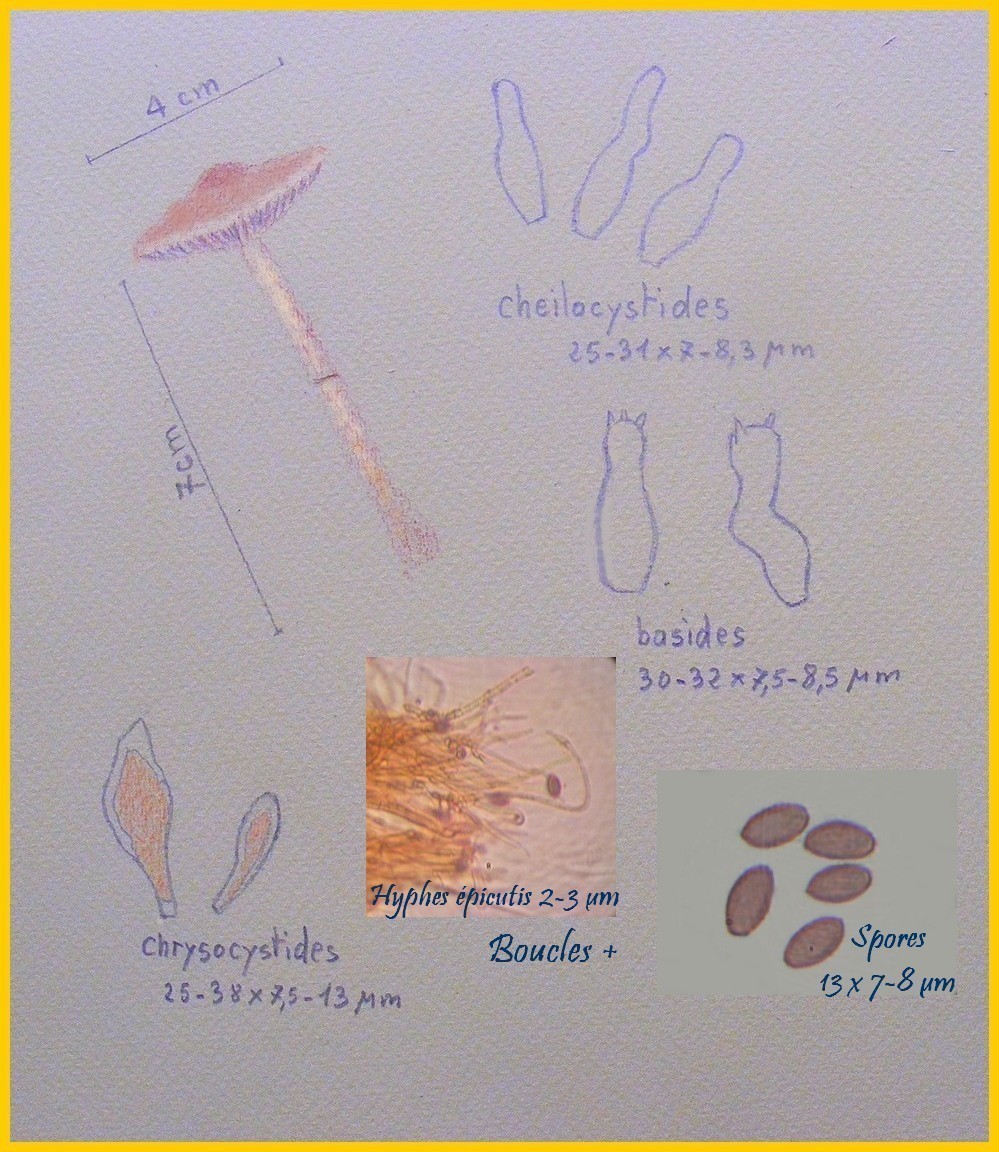 4 cm
7cm
cheilocystides
25-31 x 7-8,3 µm
basides
30-32 x 7,5-8,5 µm
Hyphes épicutis 2-3 µm
Boucles +
Spores
13 x 7-8 µm
chrysocystides
25-38 x 7,5-13 µm